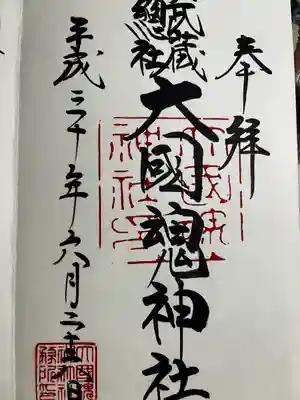 奉拝
武蔵
總社
大國魂神社
平成三十年六月二十五日